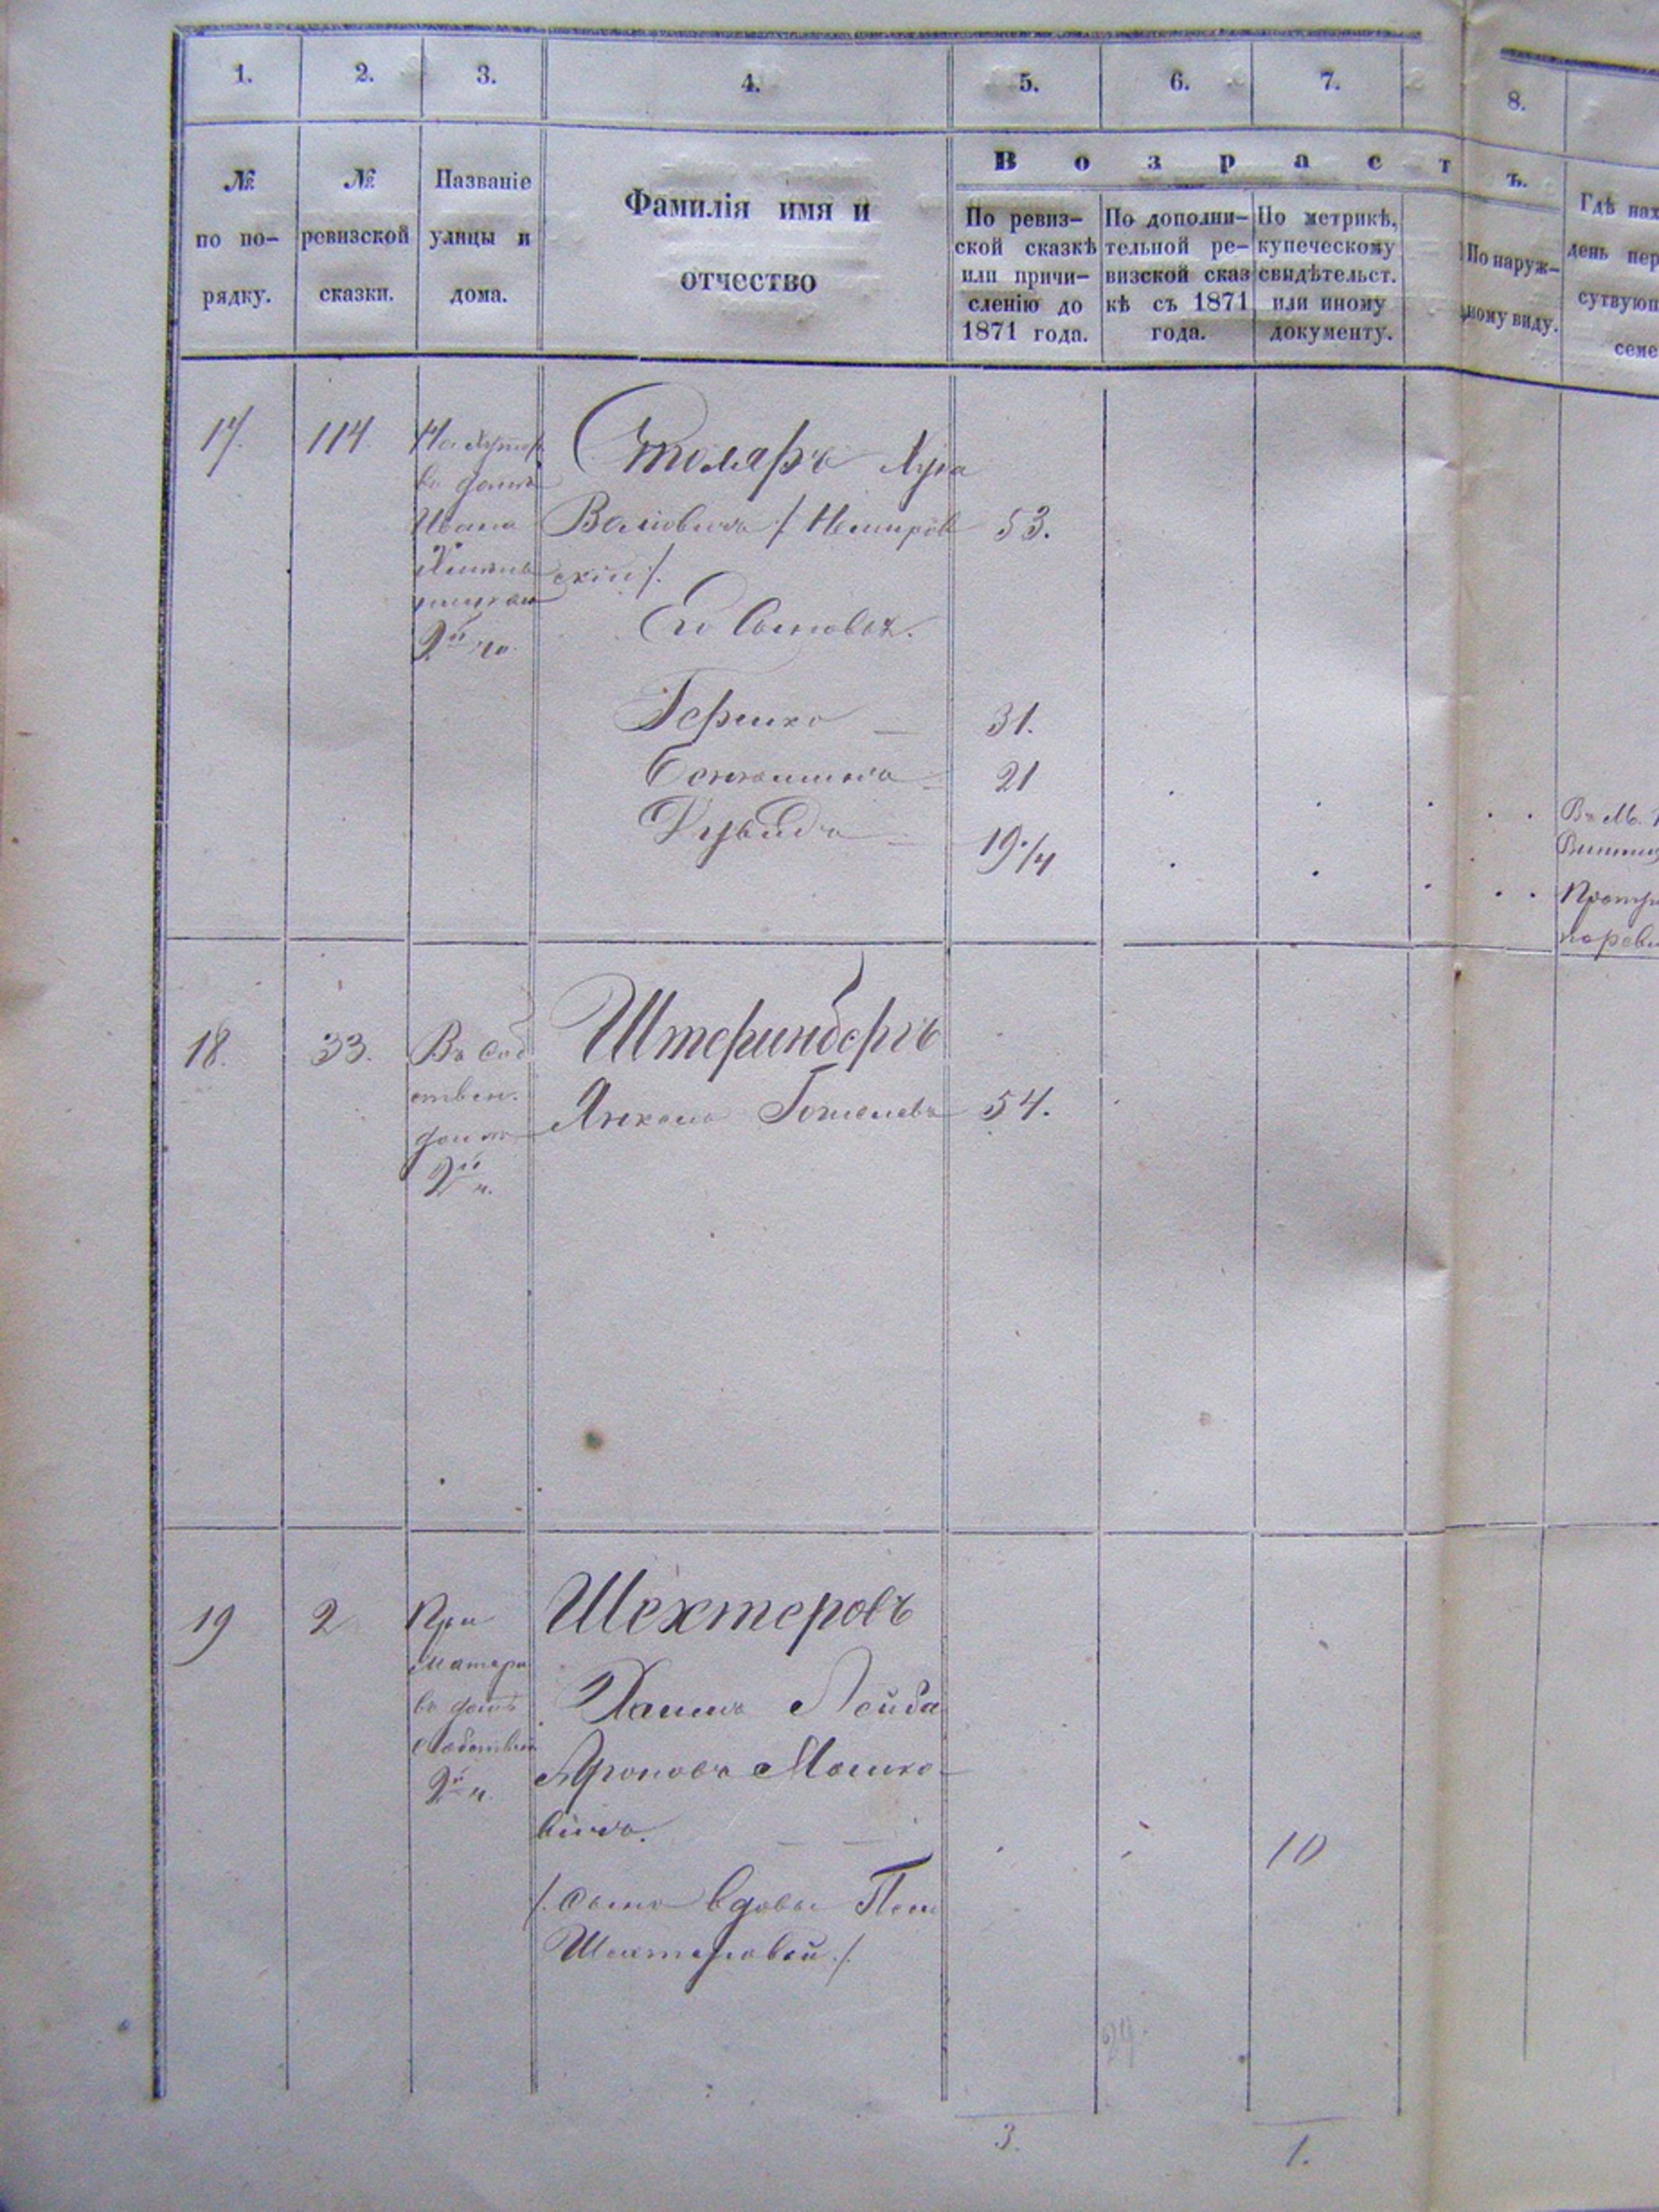 1. 2. 3. 4. 5. 6. 7. 8.
№ по по-рядку.
№ ревизской сказки.
Названіе улицы и дома.
Фамилія имя и отчество
В о з р а с т ъ.
По ревиз-
ской сказкѣ
или причи-
сленію до
1871 года.
По дополни-
тельной ре-
визской сказ
кѣ съ 1871
года.
По метрикѣ,
купеческому
свидѣтельст.
или иному
документу.
По наруж-
ному виду.
Гдѣ нах
день пер
сутвующ
семе
17. 114.
въ домѣ
Ивана
2й ч.
Столяръ
53.
скій/.
Его Сыновья.
Гершко — 31.
Беньяминъ — 21
Дувидъ — 19/4
Въ М.
18. 33.
Въ соб
ствен.
домѣ
2й ч.
Штеринбергъ
Янкель 54.
19 2
При
матери
въ домѣ
2й ч.
Шехтеровъ
Хаимъ Лейба
Ароновъ Мошко-
вичъ. 10
/. Сынъ вдовы
Шехтеровой ./
29.
3. 1.